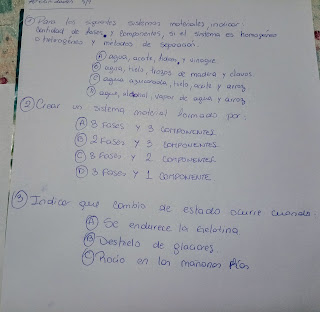 ① Para los siguientes sistemas materiales indicar:
Cantidad de fases, y componentes, si el sistema es homogéneo
o heterogéneo y metodos de separación.
Ⓐ agua, aceite, y vinagre.
Ⓑ agua, hielo, trozos de madera y clavos
Ⓒ agua azucarada, hielo, aceite y arroz
Ⓓ agua, alcohol, vapor de agua y arroz
② Crear un sistema material formado por:
Ⓐ 3 FASES Y 3 COMPONENTES.
Ⓑ 2 FASES Y 3 COMPONENTES.
Ⓒ 3 FASES Y 2 COMPONENTES.
Ⓓ 3 FASES Y 1 COMPONENTE
③ Indicar que cambio de estado ocurre cuando:
Ⓐ Se endurece la gelatina
Ⓑ Deshielo de glaciares.
Ⓒ Rocio en las mañanas frías